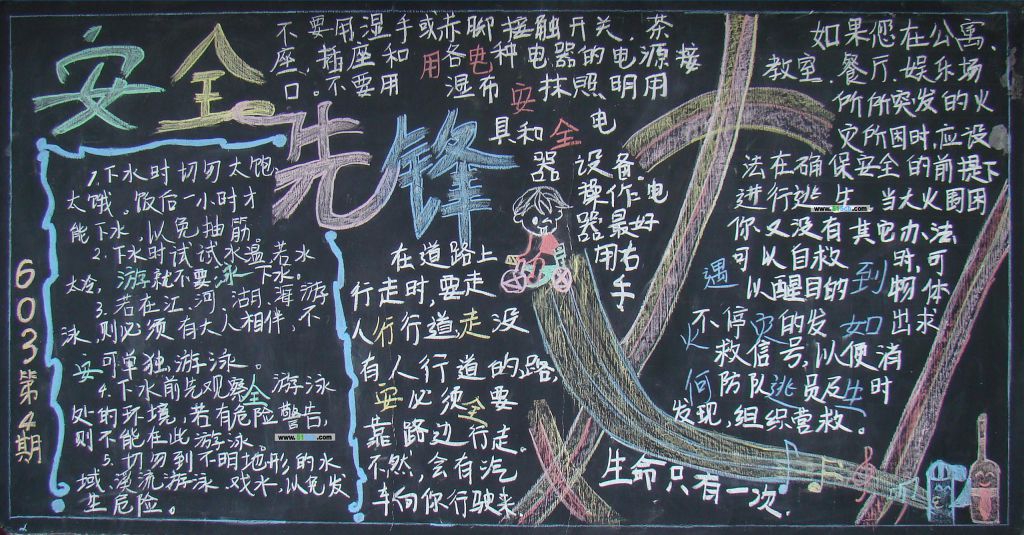 安全
先锋
603第4期
1.下水时切勿太饱、
太饿。饭后一小时才
能下水,以免抽筋
2.下水时试试水温若水
太冷,就不要下水。
3.若在江、河、湖、海游
泳,则必须有大人相伴,不
可单独游泳。
4.下水前先观察游泳
处的环境,若有危险警告,
则不能在此游泳。
5.切勿到不明地形的水
域、溪流游泳、戏水,以免发
生危险。
游泳安全
不要用湿手或赤脚接触开关、茶
座、插座和各种电器的电源接
口。不要用湿布抹照明用
具和电
器设备。电
器操作
最好
用右
手
用电安全
在道路上
行走时,要走
人行道,没
有人行道的路,
必须要
靠路边行走。
不然,会有汽
车向你行驶来
行走安全
如果您在公寓、
教室、餐厅、娱乐场
所所突发的火
灾所困时,应设
法在确保安全的前提下
进行逃生。当大火围困
你又没有其它办法
可以自救时,可
以醒目的物体
不停的发出求
救信号,以便消
防队员及时
发现,组织营救。
遇到火灾如何逃生
生命只有一次.